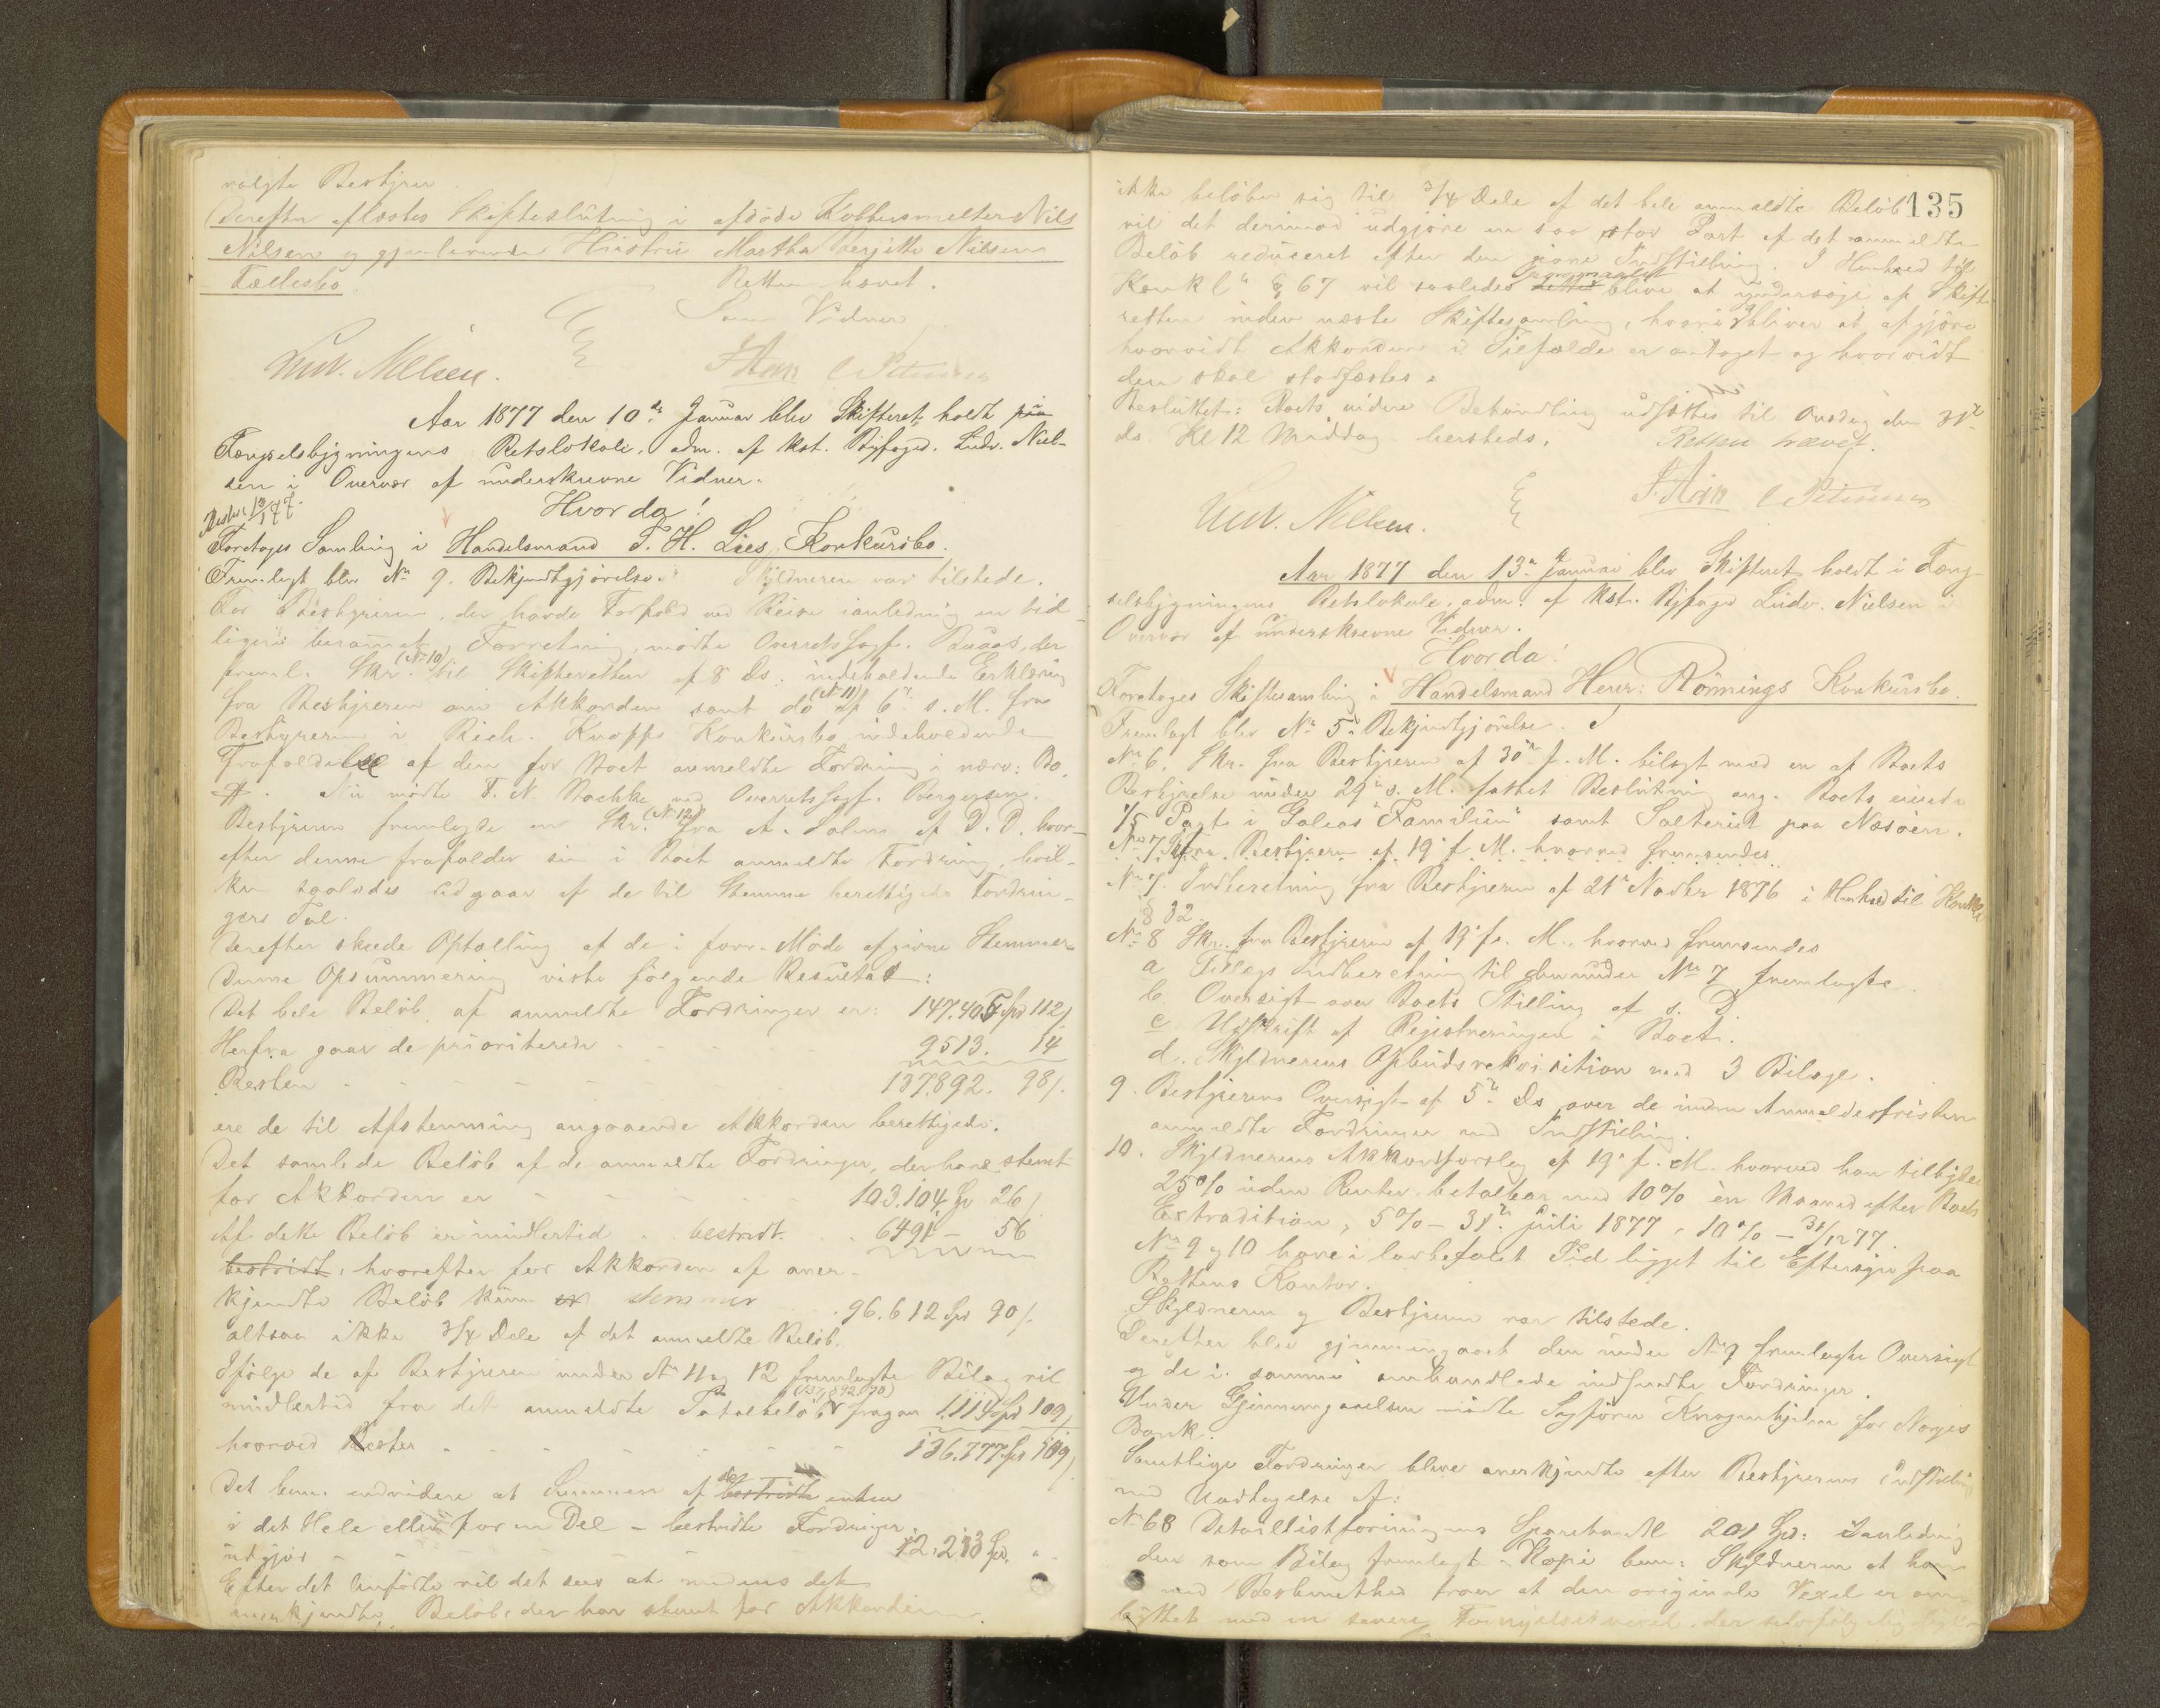 valgte Bestyrer
Derefter aflæstes Skifteslutning i afdøde Kobbersmelter Nils
Nilsen og gjenlevende Hustru Martha Berjitte Nilsens
Fællesbo. Retten hævet.
Som Vidner
Ludv. Nielsen. J. Aas C Petersen
Aar 1877 den 10de Januar blev Skifteret holdt paa
Fængselsbygningens Retslokale, adm. af kst. Byfoged. Ludv. Niel-
sen i Overvær af underskrevne Vidner.
Hvorda!
Foretoges Samling i Handelsmand T. H. Lies Konkursbo.
Fremlagt blev No 9. Bekjendtgjørelse. Skyldneren var tilstede.
For Bestyreren, der havde Forfald ved Reise i anledning en tid-
ligere berammet Forretning, mødte Overretssagf. Buaas, der
freml. Skr. (No 10) til Skifteretten af 8 ds. indeholdende Erklæring
fra Bestyreren om Akkorden samt do (No 11) af 6te s. M. fra
Bestyreren i Rich. Knoffs Konkursbo indeholdende
Frafaldelse af den for Boet anmeldte Fordring i nærv: Bo.
Nu mødte F. N. Bachke ved Overretssagf. Bergersen.
Bestyreren fremlagde en Skr. (No 12) fra A. Solem af D. D. hvor-
efter denne frafalder sin i Boet anmeldte Fordring, hvil-
ken saaledes udgaar af de til Stemme berettigede Fordrin-
gers Tal.
Derefter skede Optælling af de i forr. Møde afgivne Stemmer.
Denne Opsummering viste følgende Resultat:
Det hele Beløb af anmeldte Fordringer er: 147.405 Spd 112/
Herfra gaar de prioriterede 9513. 14
Resten 137.892. 98/.
ere de til Afstemning angaaende Akkorden berettigede.
Det samlede Beløb af de anmeldte Fordringer, der have stemt
for Akkorden er 103.104 Sp 26/
Af dette Beløb er imidlertid bestridt 6491 – 56
bestridt, hvorefter for Akkorden af aner-
kjendte Beløb kun er stemmer 96.612 Spd 90/.
altsaa ikke 3/4 Dele af det anmeldte Beløb.
Ifølge de af Bestyreren under No 11 og 12 fremlagte Bilag vil
imidlertid fra det anmeldte Totalbeløb (137,892.98) fragaa 1.114 Spd 109/
hvorved Rester 136.777 Spd 109/
Det bem. endvidere at Summen af de bestridte enten
i det Hele eller for en Del – bestridte Fordringer
udgjør 12.213 Spd.
Efter det Anførte vil det sees at medens det
anerkjendte Beløb, der har stemt for Akkorden
135
ikke beløber sig til 3/4 Dele af det hele anmeldte Beløb
vil det derimod udgjøre en saa stor Part af det anmeldte
Beløb reduceret efter den givne Indstilling. I Henhold til
Konkl. § 67 vil saaledes dette blive at undersøge af Skifte-
retten inden næste Skiftesamling, hvori bliver at afgjøre
hvorvidt Akkorden i Tilfælde er antaget og hvorvidt
den skal stadfæstes.
Besluttet: Boets videre Behandling udsættes til Onsdag den 31te
ds. Kl 12 Middag hersteds. Retten hævet.
Ludv. Nielsen. J. Aas C Petersen
Aar 1877 den 13de Januar blev Skifteret holdt i Fæng-
selsbygningens Retslokale, adm. af kst. Byfoged Ludv. Nielsen i
Overvær af underskrevne Vidner.
Hvorda!
Foretoges Skiftesamling i Handelsmand Henr: Rønnings Konkursbo.
Fremlagt blev No 5. Bekjendtgjørelse.
No 6. Skr. fra Bestyreren af 30te f. M. bilagt med en af Boets
Bestyrelse under 29de s. M. fattet Beslutning ang. Boets eiende
1/5 Part i Galeas "Familien" samt Salteriet paa Næsøen.
No 7 Skr fra Bestyreren af 19 f. M. hvorved fremsendes
No 7. Indberetning fra Bestyreren af 21de Novbr 1876 i Henhold til Konkl
§ 32.
No 8 Skr. fra Bestyreren af 19 f. M., hvorved fremsendes
a Tillægs Indberetning til den under No 7 fremlagte.
b. Oversigt over Boets Stilling af s. D.
c Udskrift af Registreringen i Boet.
d. Skyldnerens Opbudsrekvisition med 3 Bilage.
9. Bestyrerens Oversigt af 5te ds over de inden Anmeldelsesfristen
anmeldte Fordringer med Indstilling.
10. Skyldnerens Akkordforslag af 19 f. M. hvorved han tilbyder
25% uden Renter betalbar med 10% en Maaned efter Boets
Extradition, 5% – 31te Juli 1877, 10% – 31/12 77.
No 9 og 10 have i lovbefalet Tid ligget til Eftersyn paa
Rettens Kontor.
Skyldneren og Bestyreren var tilstede.
Derefter blev gjennemgaaet den under No 9 fremlagte Oversigt
og de i samme omhandlede indsendte Fordringer.
Under Gjennemgaaelsen mødte Sagfører Knagenhjelm for Norges
Bank.
Samtlige Fordringer bleve anerkjendte efter Bestyrerens Indstilling
med Undtagelse af:
No 68 Detaillistforeningens Sparebank 201 Spd: i Anledning
den som Bilag fremlagt Kopi bem: Skyldneren at han
med Bestemthed troer at den originale Vexel er om-
byttet med en senere Fornyelsesvexel, der selvfølgelig